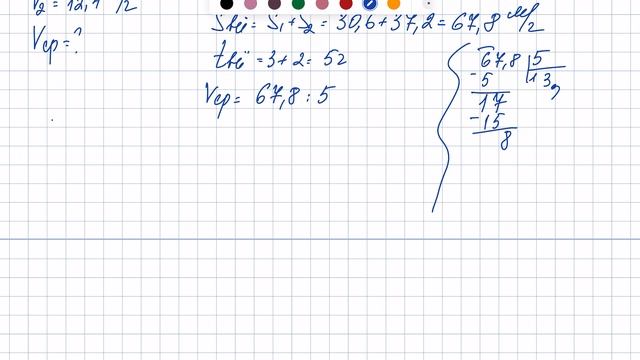 V₂ = 12,4 /2
Vср = ?
Sвсё = S₁ + S₂ = 30,6 + 37,2 = 67,8 км/2
tвсё = 3 + 2 = 5 2
Vср = 67,8 : 5
67,8 | 5
- 5 | 13,
17
- 15
8